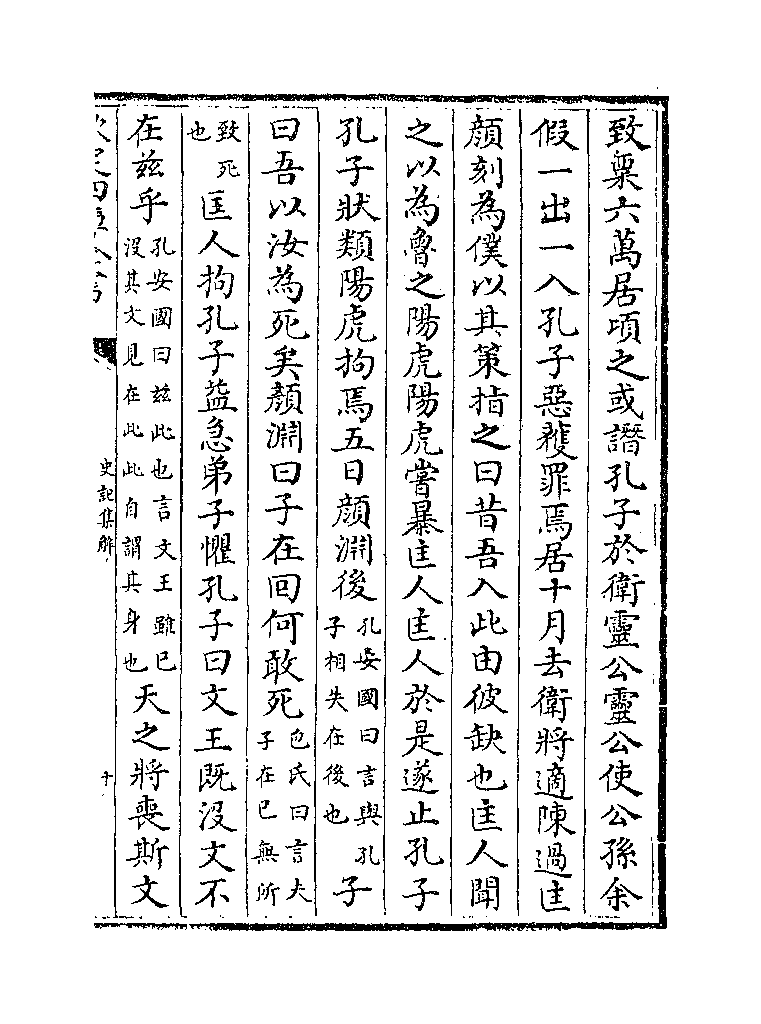 致粟六萬居頃之或譖孔子於衛靈公靈公使公孫余
假一出一入孔子惡獲罪焉居十月去衛將適陳過匡
顔刻為僕以其策指之曰昔吾入此由彼缺也匡人聞
之以為魯之陽虎陽虎嘗暴匡人匡人於是遂止孔子
孔子狀類陽虎拘焉五日顔淵後孔安國曰言與孔子相失在後也子
曰吾以汝為死矣顔淵曰子在回何敢死包氏曰言夫子在已無所
致死也匡人拘孔子益急弟子懼孔子曰文王既没文不
在兹乎孔安國曰兹此也言文王雖已没其文見在此此自謂其身也天之將喪斯文
欽定四庫全書
史記集解
十